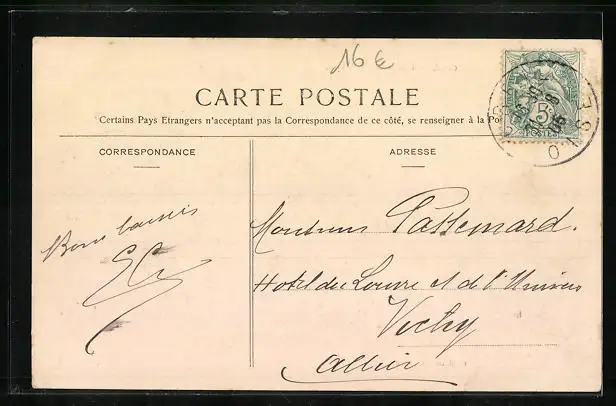 16€
CARTE POSTALE
Certains Pays Etrangers n'acceptant pas la Correspondance de ce côté, se renseigner à la Po
CORRESPONDANCE
ADRESSE
5
POSTES
OISE
Bons baisers
Monsieur Passemard.
Hotel du Louvre et de l'Univers
Vichy
Allier